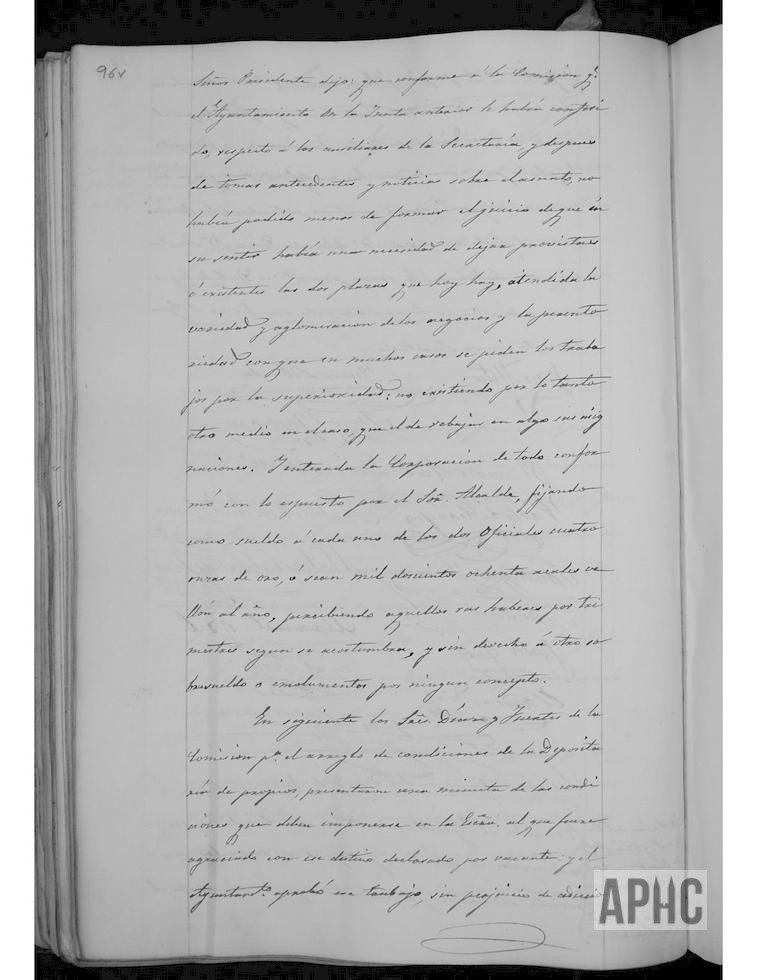 96v
Señor Presidente dijo: que conforme á la Comision qe.
el Ayuntamiento en la Junta anterior le habia conferi
do, respecto á los ausiliares de la Secretaría, y despues
de tomar antecedentes y noticias sobre el asunto, no
habia podido menos de formar el juicio de que en
su sentir habia una necesidad de dejar provistas
ó existentes las dos plazas que hoy hay, atendida la
variedad y aglomeracion de los negocios y la perento
riedad con que en muchos casos se piden los traba
jos por la superioridad: no existiendo por lo tanto
otro medio en el caso, que el de rebajar en algo sus asig
naciones. Y enterada la Corporacion de todo confor
mó con lo espuesto por el Sor. Alcalde, fijando
como sueldo á cada uno de los dos Oficiales cuatro
onzas de oro, ó sean mil doscientos ochenta reales ve
llon al año, percibiendo aquellos sus haberes por tri
mestres segun se acostumbra, y sin derecho á otro so
bresueldo o emolumentos por ningun concepto.
En siguiente los Sres. Diaz y Fuentes de la
Comision pa. el arreglo de condiciones de la Deposita
ría de propios, presentaron una minuta de las condi
ciones que deben imponerse en la Escra. al que fuere
agraciado con ese destino declarado por vacante: y el
Ayuntamto. aprobó ese trabajo sin perjuicio de adicio
APHC